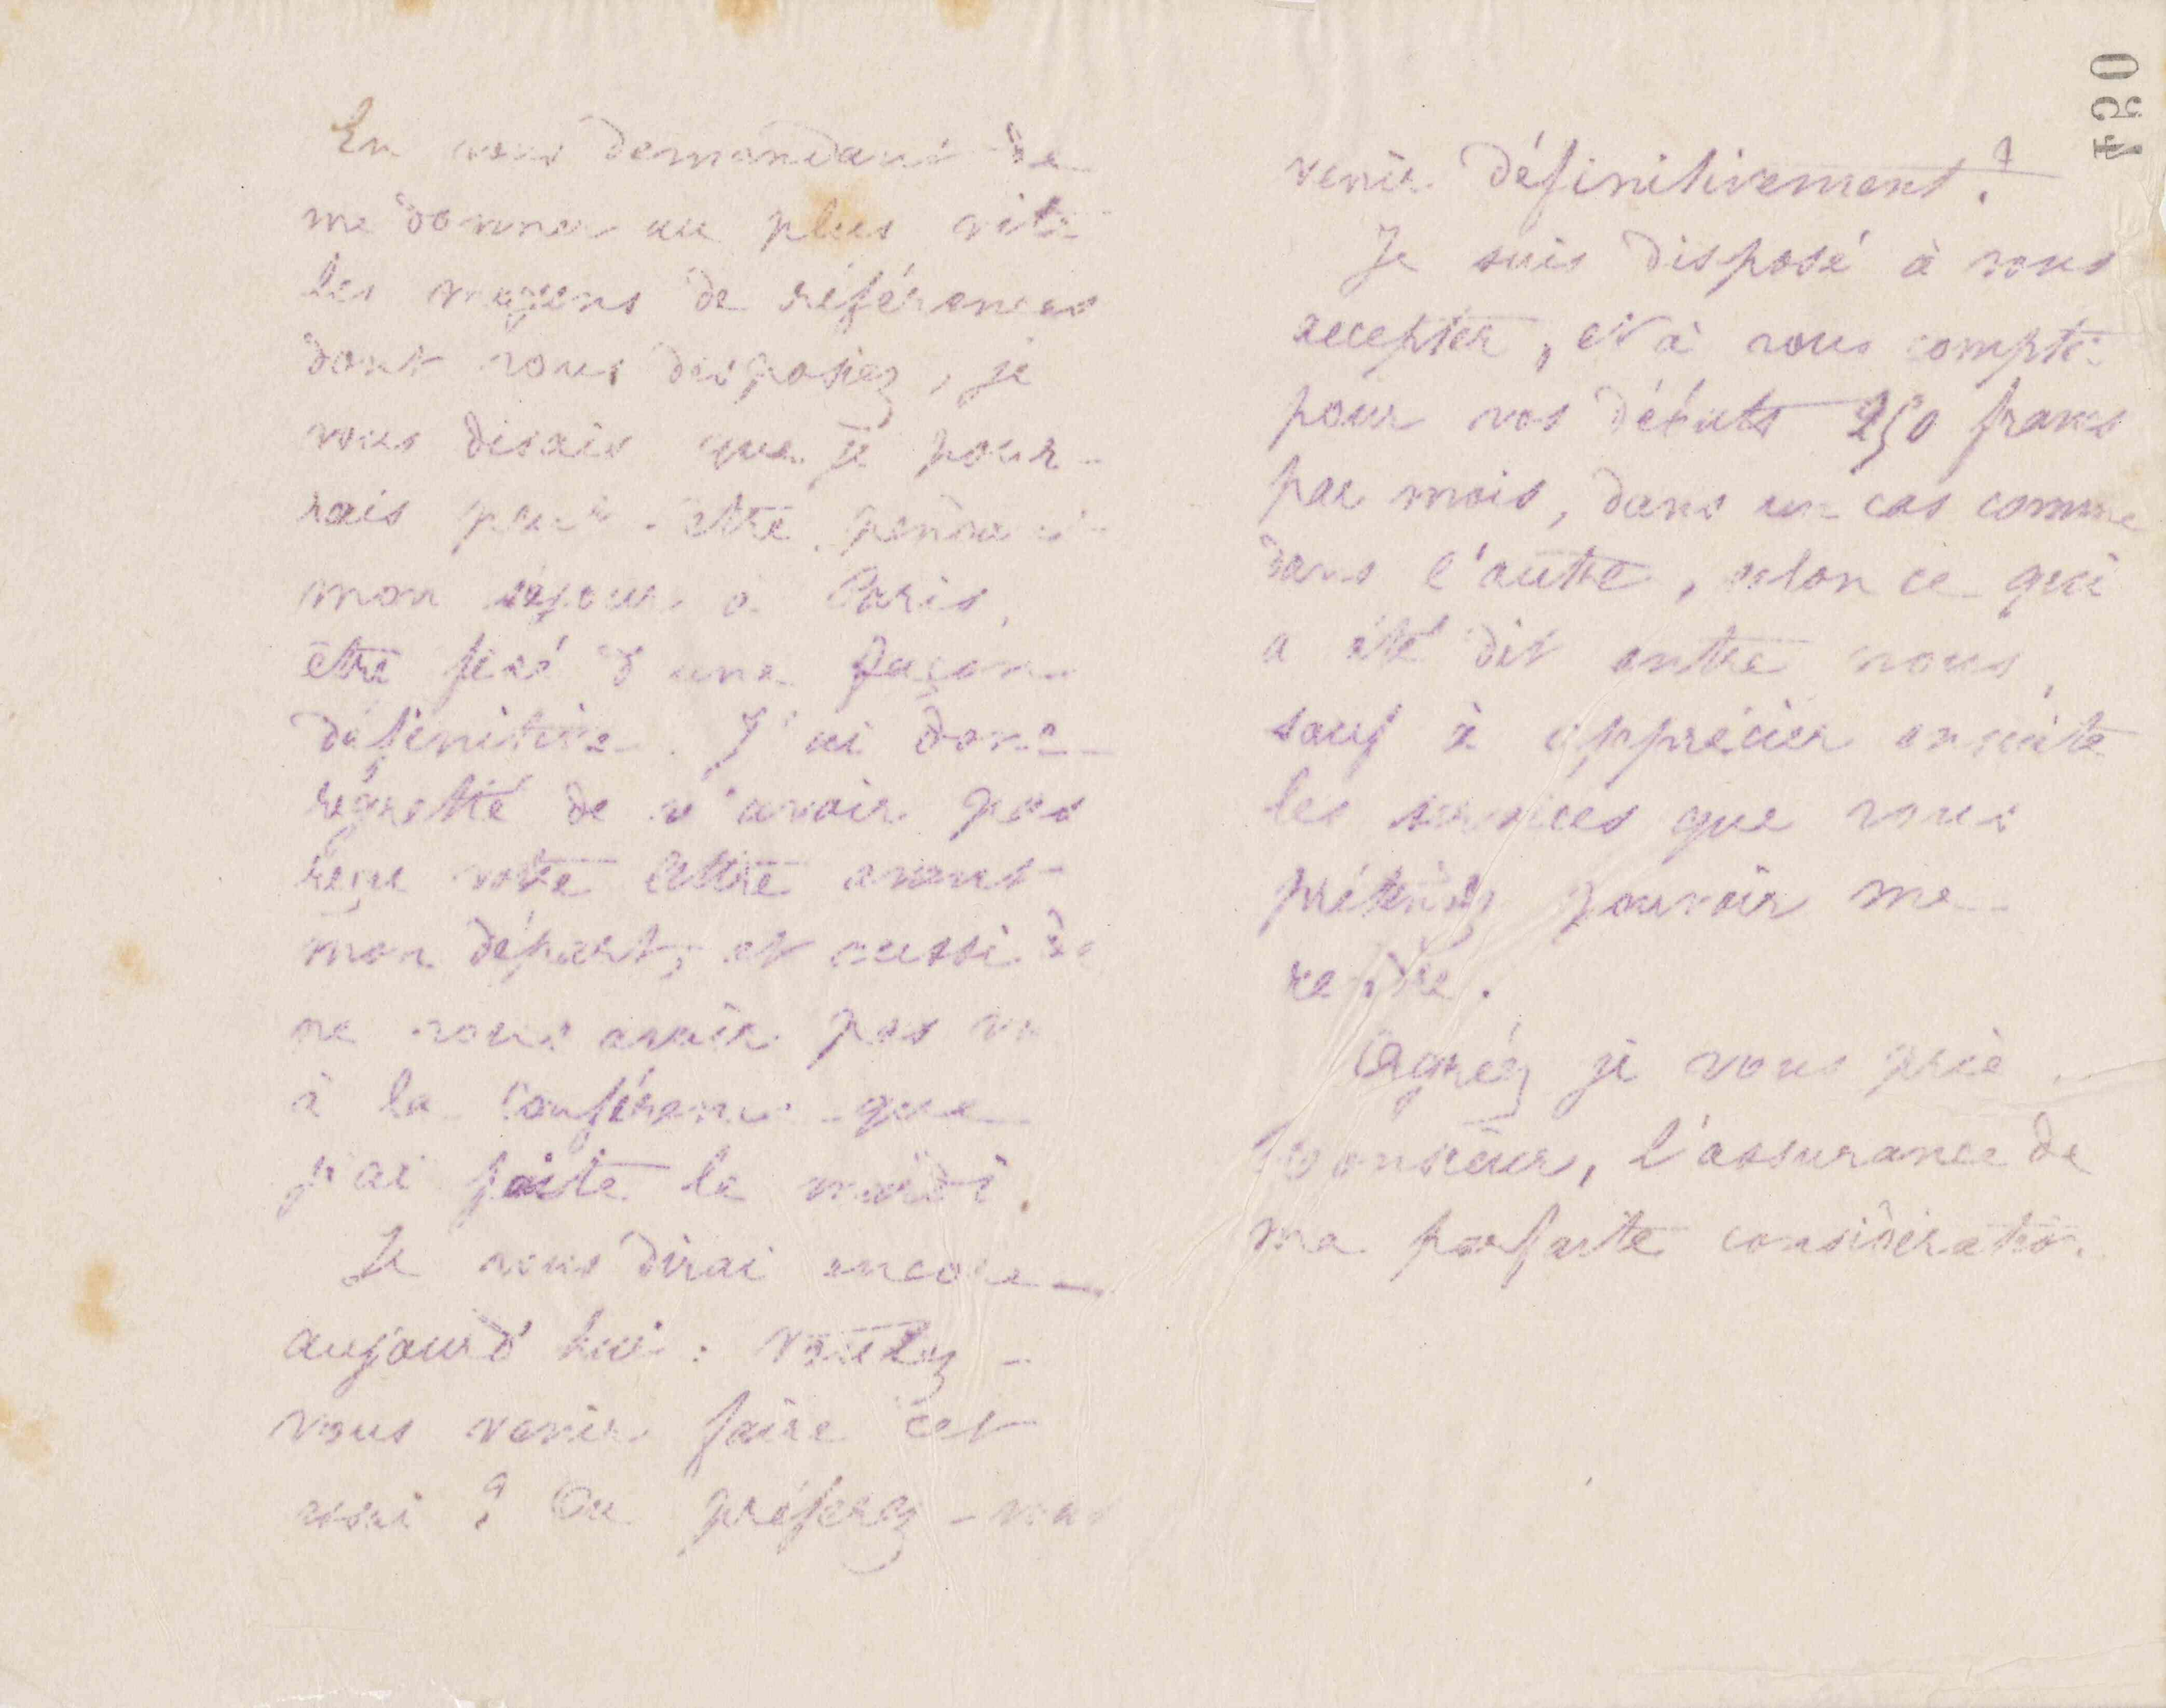 En vous demandant de
me donner au plus vite
les moyens de références
dont vous disposiez, je
vous disais que je pour-
rais peut-être pendant
mon séjour à Paris,
être fixé d'une façon
définitive. J'ai donc
regretté de n'avoir pas
reçu votre lettre avant
mon départ, et aussi de
ne vous avoir pas vu
à la conférence que
j'ai faite le mardi.
Je vous dirai encore
aujourd'hui : voulez-
vous venir faire cet
essai ? Ou préférez-vous
venir définitivement ?
Je suis disposé à vous
accepter, et à vous compter
pour vos débuts 250 francs
par mois, dans un cas comme
dans l'autre, selon ce qui
a été dit entre nous,
sauf à apprécier ensuite
les services que vous
prétendez pouvoir me
rendre.
Agréez je vous prie
Monsieur, l'assurance de
ma parfaite considération.
054